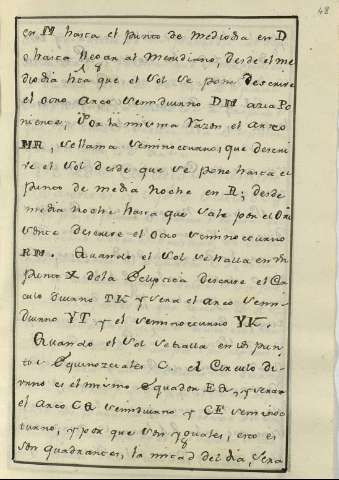 48
en M hasta el punto de mediodia en D
o hasta llegar al Meridiano, desde el me
diodia hta que el Sol se pone descrive
el otro Arco semidiurno DN azia Po
niente; Por la misma razon el Arco
NR, se llama seminocturno; que descri
ve el Sol desde que se pone hasta el
punto de media noche en R; desde
media noche hasta que sale por el Ori
zonte descrive el otro seminocturno
RM. Quando el Sol se halla en un
punto X de la Ecliptica descrive el Cir
culo diurno TK y sera el arco semi-
diurno YT y el seminocturno YK.
Quando el Sol se halla en los pun
tos Equinocciales C. el Circulo di-
urno es el mismo Equador EQ, y seran
el Arco CQ semidiurno y CE seminoc
turno, y por que son yguales, esto es
son quadrantes, la mitad del dia, sera